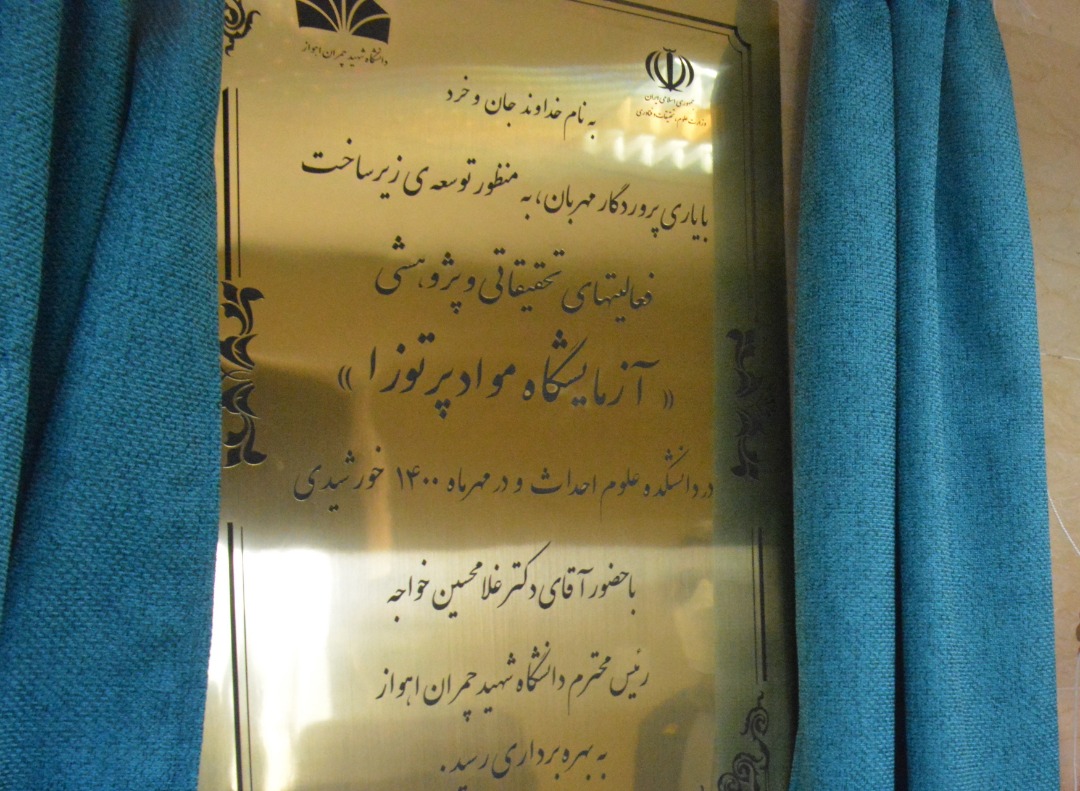 دانشگاه شهید چمران اهواز
جمهوری اسلامی ایران
وزارت علوم، تحقیقات و فناوری
به نام خداوند جان و خرد
با یاری پروردگار مهربان، به منظور توسعه ی زیرساخت
فعالیتهای تحقیقاتی و پژوهشی
« آزمایشگاه مواد پرتوزا »
در دانشکده علوم احداث و در مهرماه ۱۴۰۰ خورشیدی
با حضور آقای دکتر غلامحسین خواجه
رئیس محترم دانشگاه شهید چمران اهواز
به بهره برداری رسید.